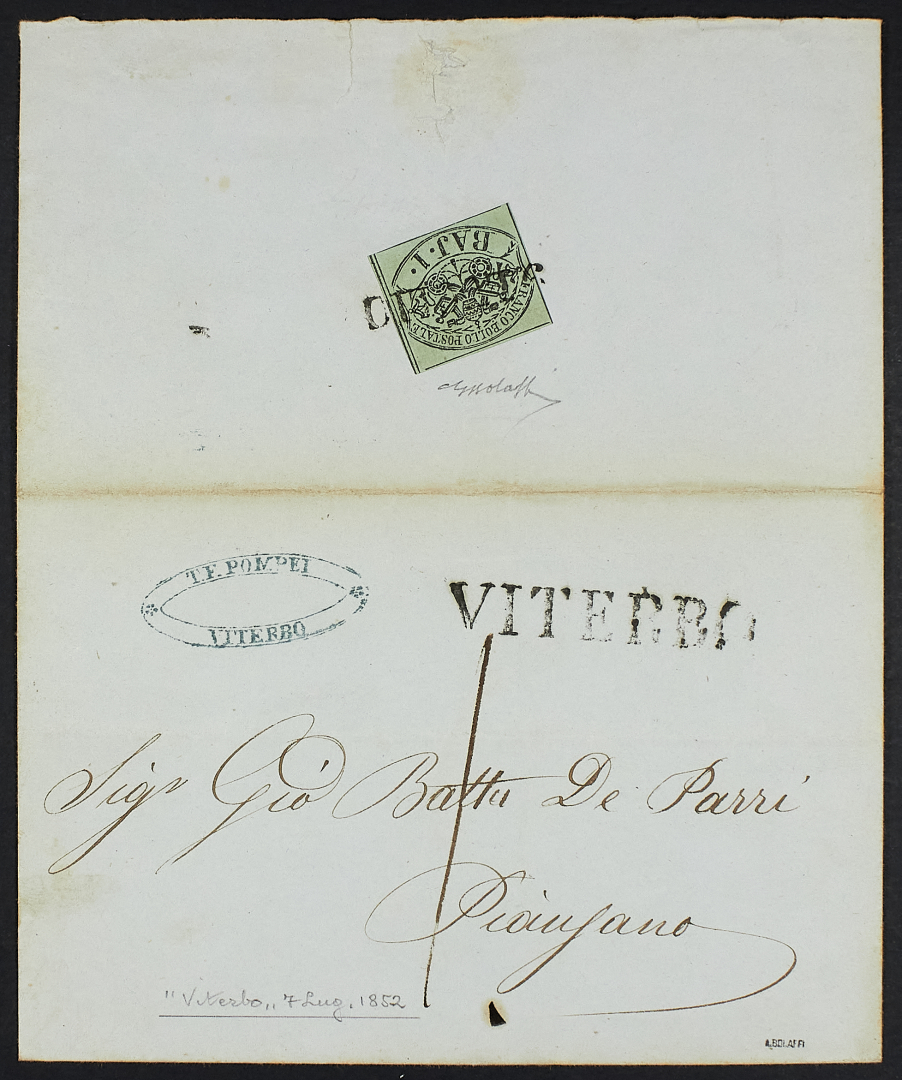 BAJ. 1.
FRANCO BOLLO POSTALE
T.F. POMPEI
VITERBO
VITERBO
1
Sigr Gio Batta De Parri
Pianzano
"Viterbo„ 7 Lug. 1852
A.BOLAFFI